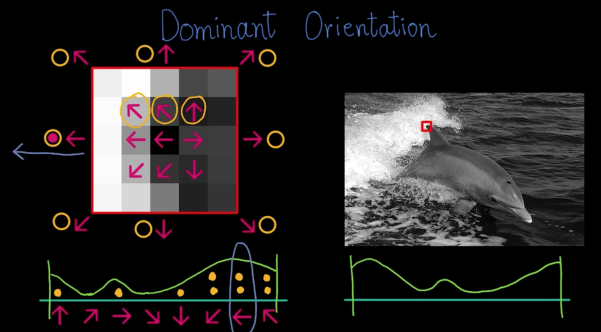 Dominant Orientation